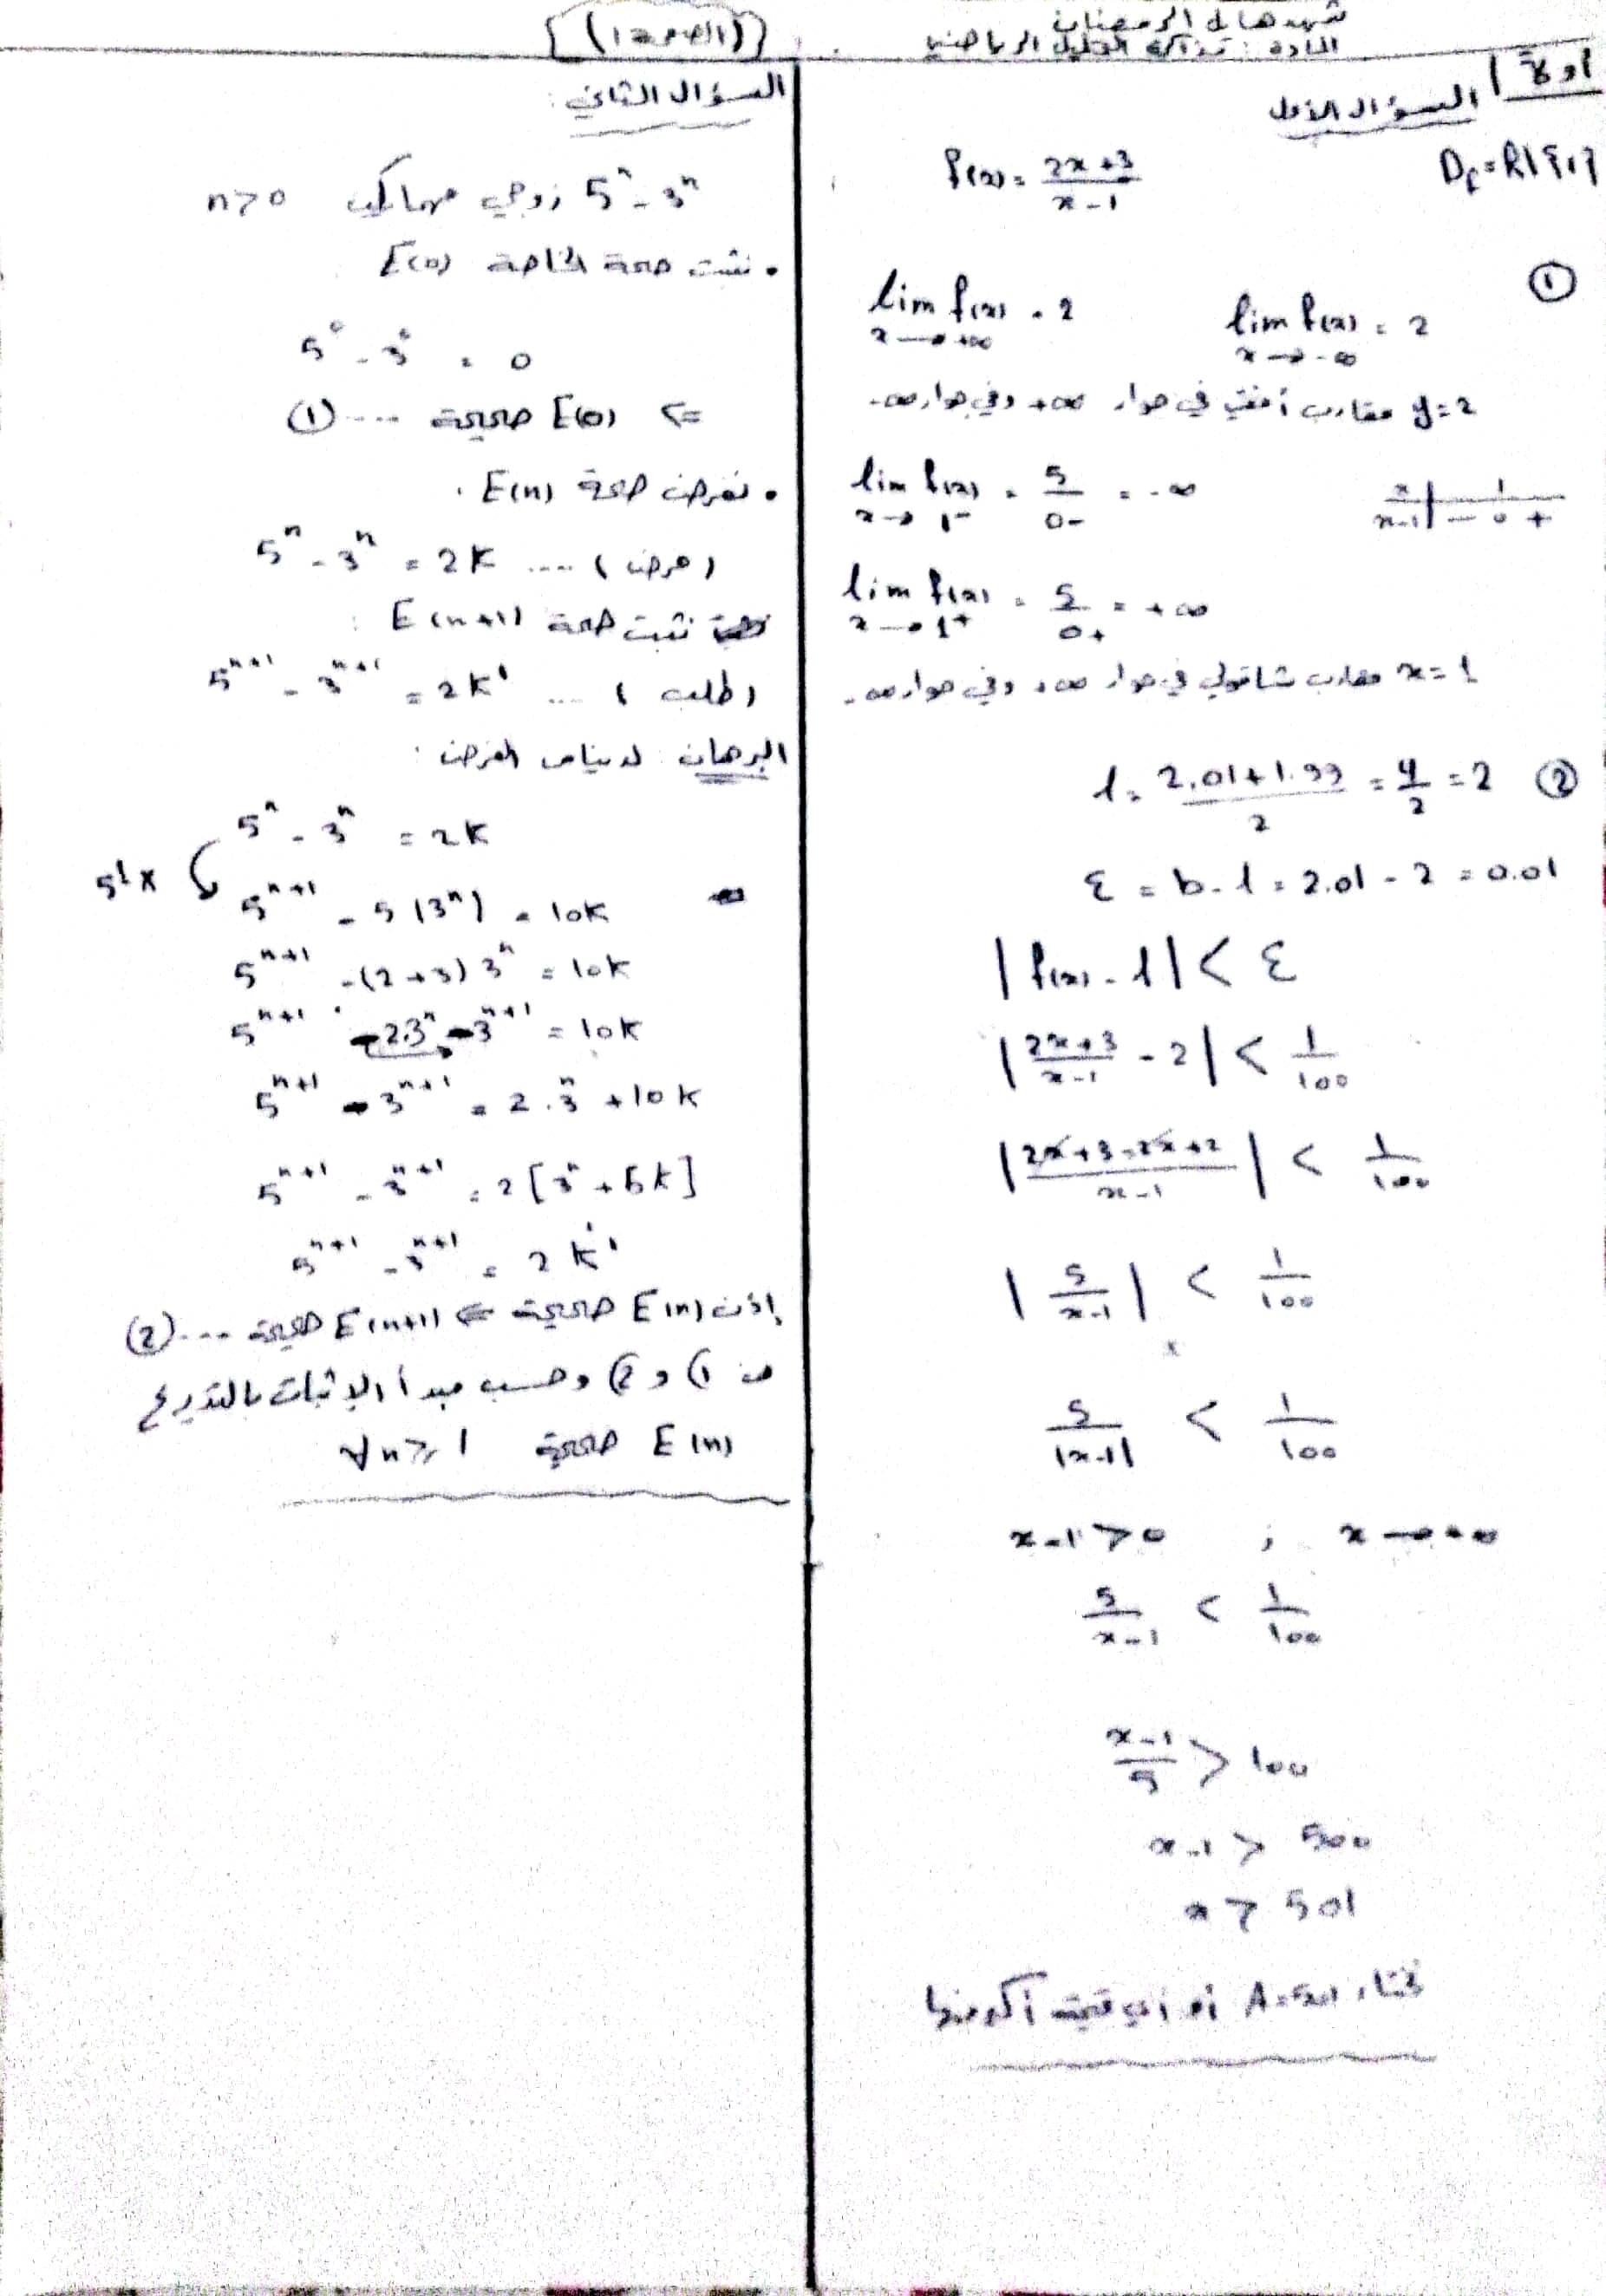 [(الصفحة 1)]
شهد هايل الرمضان
المادة : مذاكرة التحليل الرياضيا
أولاً | السؤال الأول
D_f = R\{1}
f(x) = (2x+3)/(x-1)
①
lim f(x) = 2 x→-∞
lim f(x) = 2 x→+∞
y=2 مقارب أفقي في جوار +∞ وفي جوار -∞
lim f(x) = 5/0- = -∞ x→1-
x | 1
x-1 | - 0 +
lim f(x) = 5/0+ = +∞ x→1+
x=1 مقارب شاقولي في جوار +∞ وفي جوار -∞
② l = (2.01+1.99)/2 = 4/2 = 2
ε = b-l = 2.01-2 = 0.01
|f(x)-l| < ε
|(2x+3)/(x-1) - 2| < 1/100
|(2x+3-2x+2)/(x-1)| < 1/100
|5/(x-1)| < 1/100
5/|x-1| < 1/100
x-1>0 ; x→+∞
5/(x-1) < 1/100
(x-1)/5 > 100
x-1 > 500
x > 501
نختار A=501 أو أي قيمة أكبر منها
السؤال الثاني :
5^n - 3^n زوجي مهما كان n>0
• نثبت صحة الخاصة E(0)
5^0 - 3^0 = 0
=> E(0) صحيحة ....(1)
• نفرض صحة E(n) :
5^n - 3^n = 2k .... (فرض)
نثبت صحة E(n+1) :
5^(n+1) - 3^(n+1) = 2k' .... (طلب)
البرهان : لدينا من الفرض :
5^n - 3^n = 2k
5^1 ×
5^(n+1) - 5(3^n) = 10k
5^(n+1) - (2+3)3^n = 10k
5^(n+1) - 2.3^n - 3^(n+1) = 10k
5^(n+1) - 3^(n+1) = 2.3^n + 10k
5^(n+1) - 3^(n+1) = 2[3^n + 5k]
5^(n+1) - 3^(n+1) = 2k'
إذن E(n) صحيحة => E(n+1) صحيحة ....(2)
من 1) و 2) وحسب مبدأ الإثبات بالتدريج
E(n) صحيحة ∀n≥1